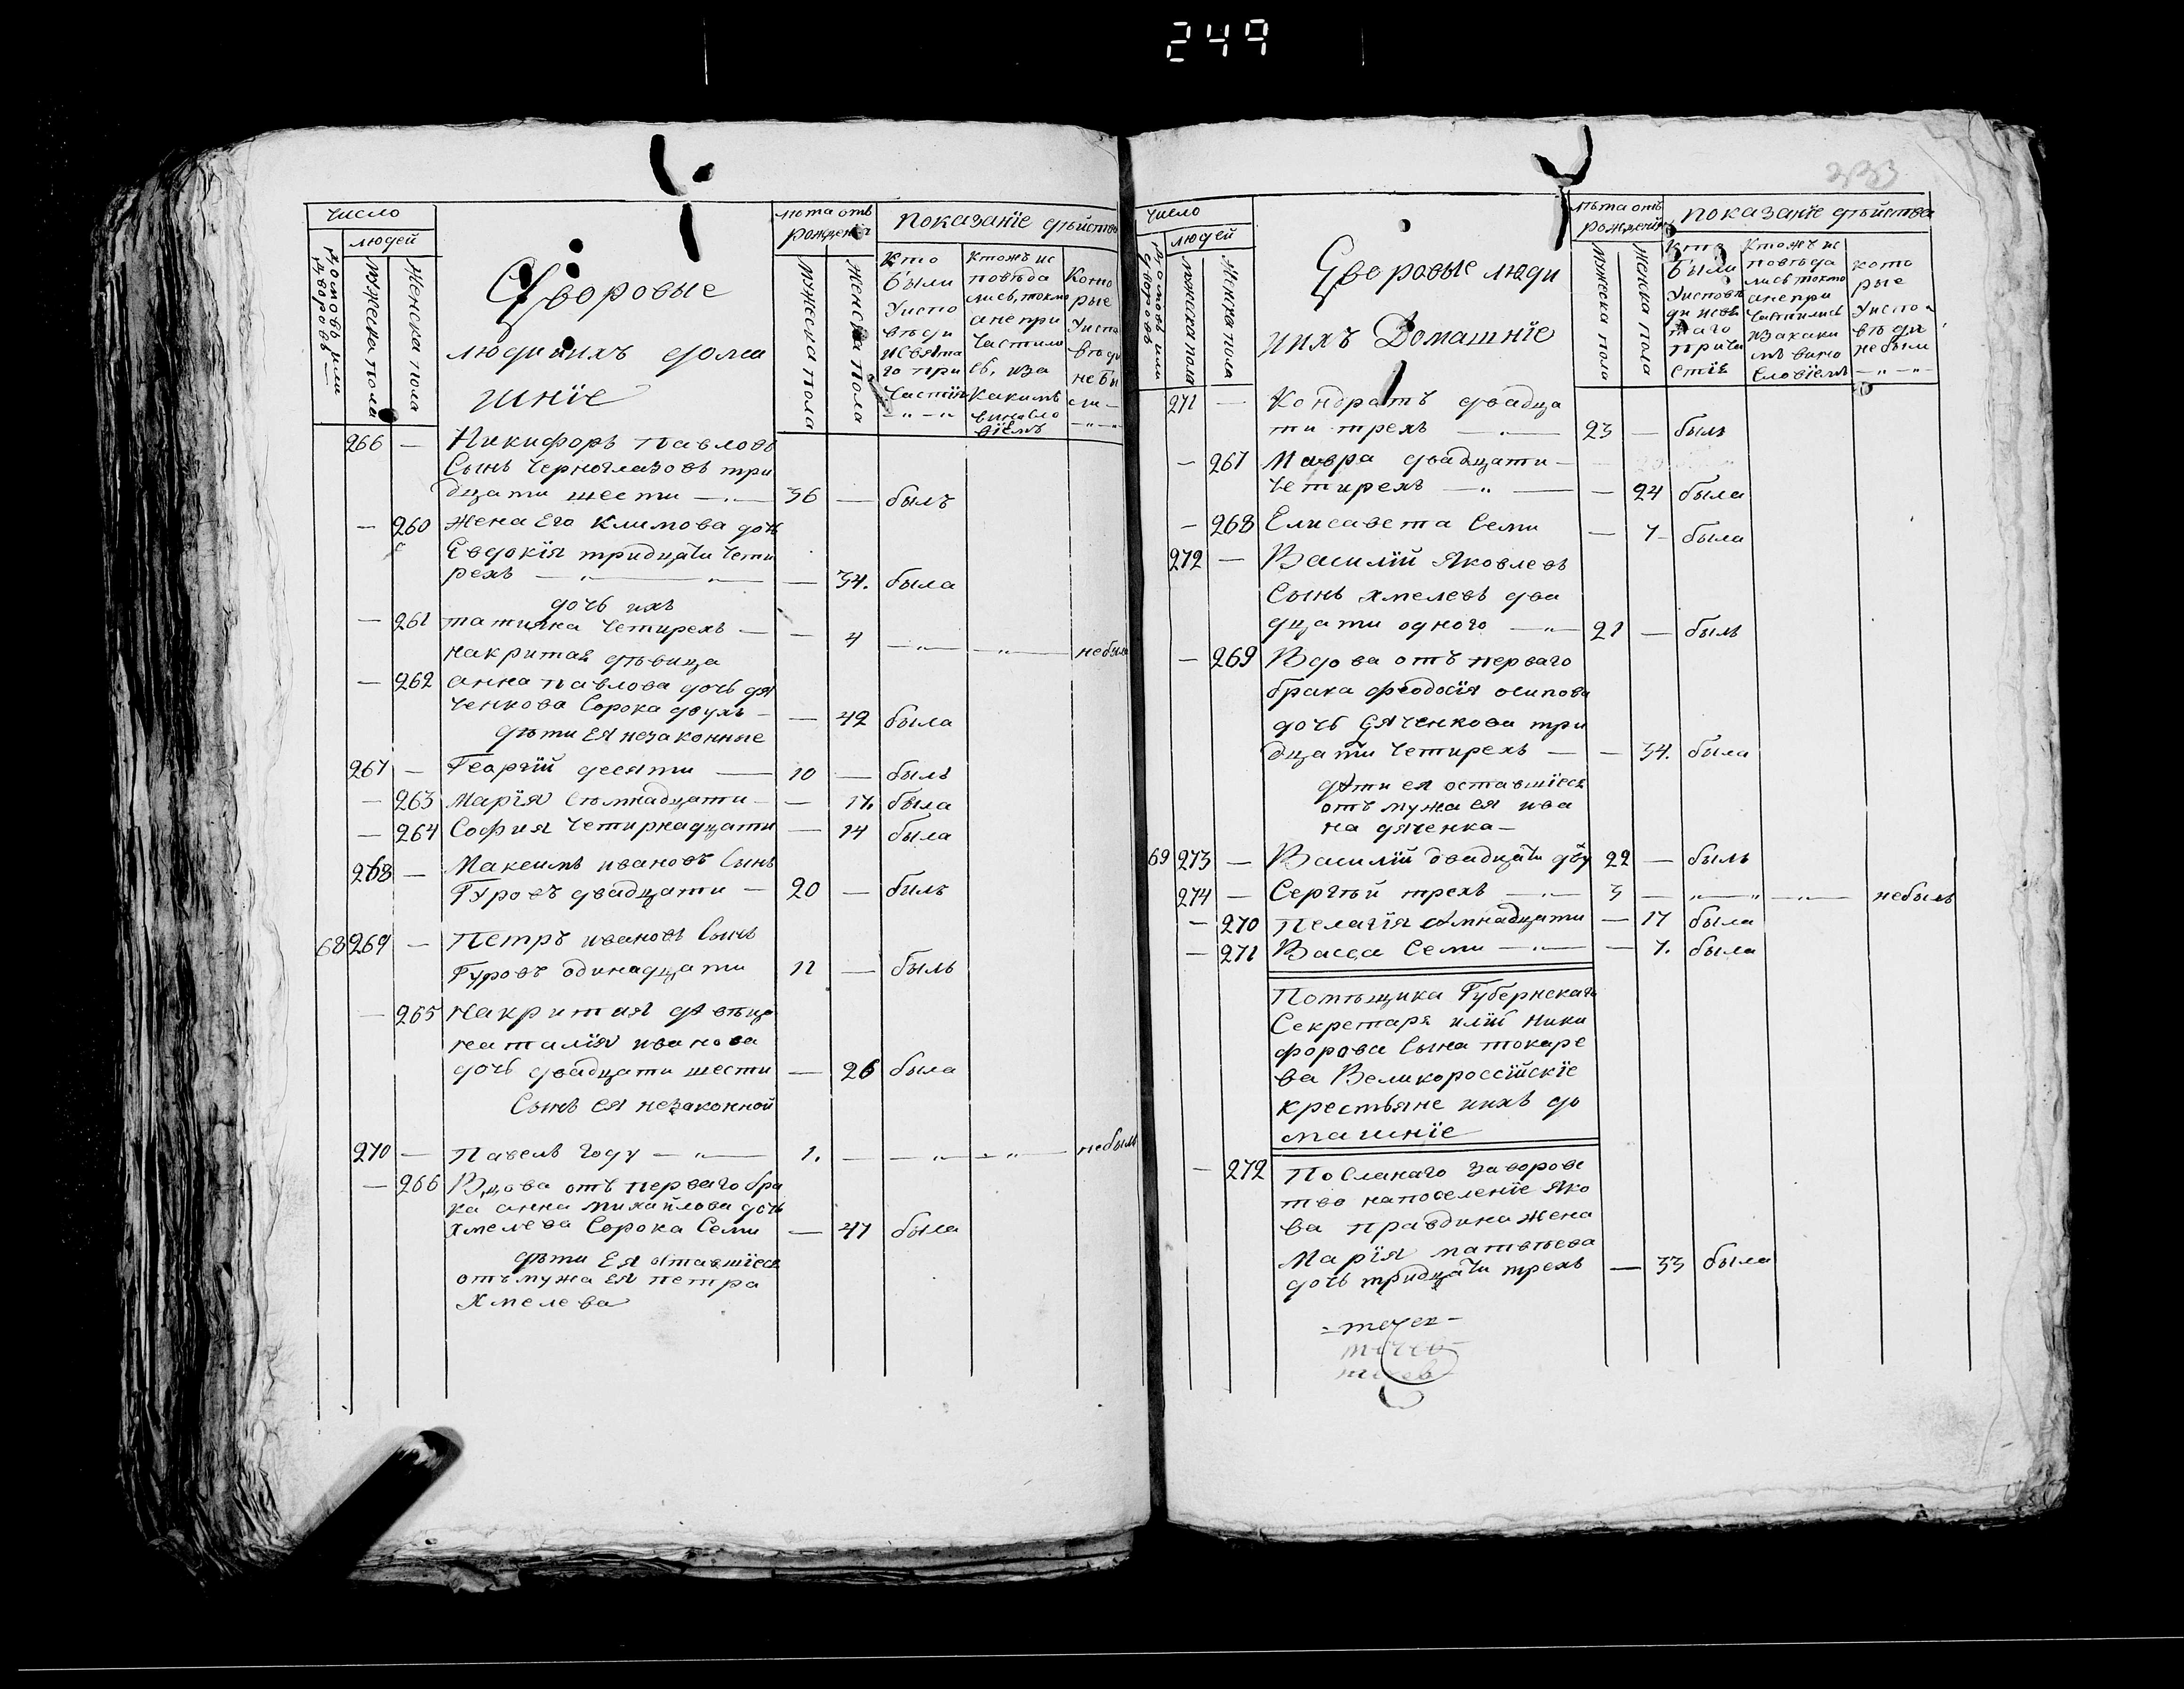 249
число
людей
домовъ или дворовъ
мужеска пола
женска пола
Дворовые
люди ихъ дома
шнїе
лѣта отъ
рожденїя
мужеска пола
женска пола
показанїе дѣйства
Кто
были
Уиспо
вѣди
исвята
го при
частїя
Ктожъ ис
повѣда
лись, токмо
анепри
частило
сь, иза
какимъ
виносло
вїемъ
Кото
рые
Уиспо
вѣди
небы
ли
266 — Никифоръ павловъ
Сынъ Черноглазовъ три
дцати шести — 36 — былъ
— 260 Жена Его Климова дочь
Евдокїя тридцати чети
рехъ — — 34. была
дочь ихъ
— 261 татияна четирехъ — — 4 — — небыла
накритая дѣвица
— 262 анна павлова дочь дя
ченкова Сорока двухъ — — 42 была
дѣти Ея незаконные
267 — Георгїй десяти — 10 — былъ
— 263 Марїя семнадцати — — 17. была
— 264 София четирнадцати — 14 была
268 — Максимъ ивановъ Сынъ
Гуровъ двадцати — 20 — билъ
68 269 — Петръ ивановъ Сынъ
Гуровъ одинадцати 11 — былъ
— 265 накритая дѣвица
наталїя иванова
дочь двадцати шести — 26 была
Сынъ ея незаконной
270 — Павелъ году — 1. — — — небылъ
— 266 Вдова отъ перваго бра
ка анна михайлова дочь
хмелева Сорока Семи — 47 была
дѣти Ея оставшїеся
отъ мужа ея петра
Хмелева
333
число
людей
домовъ или дворовъ
мужеска пола
женска пола
Дворовые люди
ихъ Домашнїе
лѣта отъ
рожденїя
мужеска пола
женска пола
показанїе дѣйства
Кто
были
Уисповѣ
ди исвя
таго
причи
стїя
Ктожъ ис
повѣда
лись токмо
анепри
частились
изакаки
мъ вино
словїемъ
кото
рые
Уиспо
вѣди
небыли
271 — Кондратъ двадца
ти трехъ — 23 — былъ
— 267 Мавра двадцати —
четирехъ — — 24 была
— 268 Елисавета Семи — 7 была
272 — Василїй Яковлевъ
Сынъ хмелевъ два
дцати одного — 21 — былъ
— 269 Вдова отъ перваго
брака феодосїя осипова
дочь Дяченкова три
дцати четирехъ — — 34. была
дѣти ея оставшїеся
отъ мужа ея ива
на дяченка —
69 273 — Василїй двадцати дву 22 — былъ
274 — Сергѣй трехъ — 3 — — — небылъ
— 270 Пелагїя семнадцати — 17 была
— 271 Васса Семи — — 7. была
Помѣщика Губернскаго
Секретаря илїи Ники
форова Сына токаре
ва Великороссїйскїе
крестьяне ихъ до
машнїе
— 272 Посланаго заворов
тво напоселенїе Яко
ва правдина Жена
Марїя матвѣева
дочь тридцати трехъ — 33 была